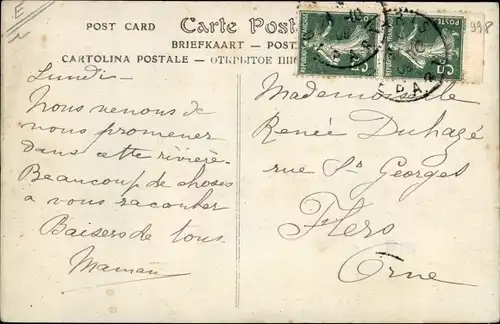 E
POST CARD
Carte Posta
BRIEFKAART — POST
CARTOLINA POSTALE — ОТКРЫТОЕ ПИС
Lundi —
Nous venons de
nous promener
dans cette rivière.
Beaucoup de choses
a vous raconter
Baisers de tous
Maman
Mademoiselle
Renée Duhazé
rue St Georges
Flers
Orne
PARIS
5
998